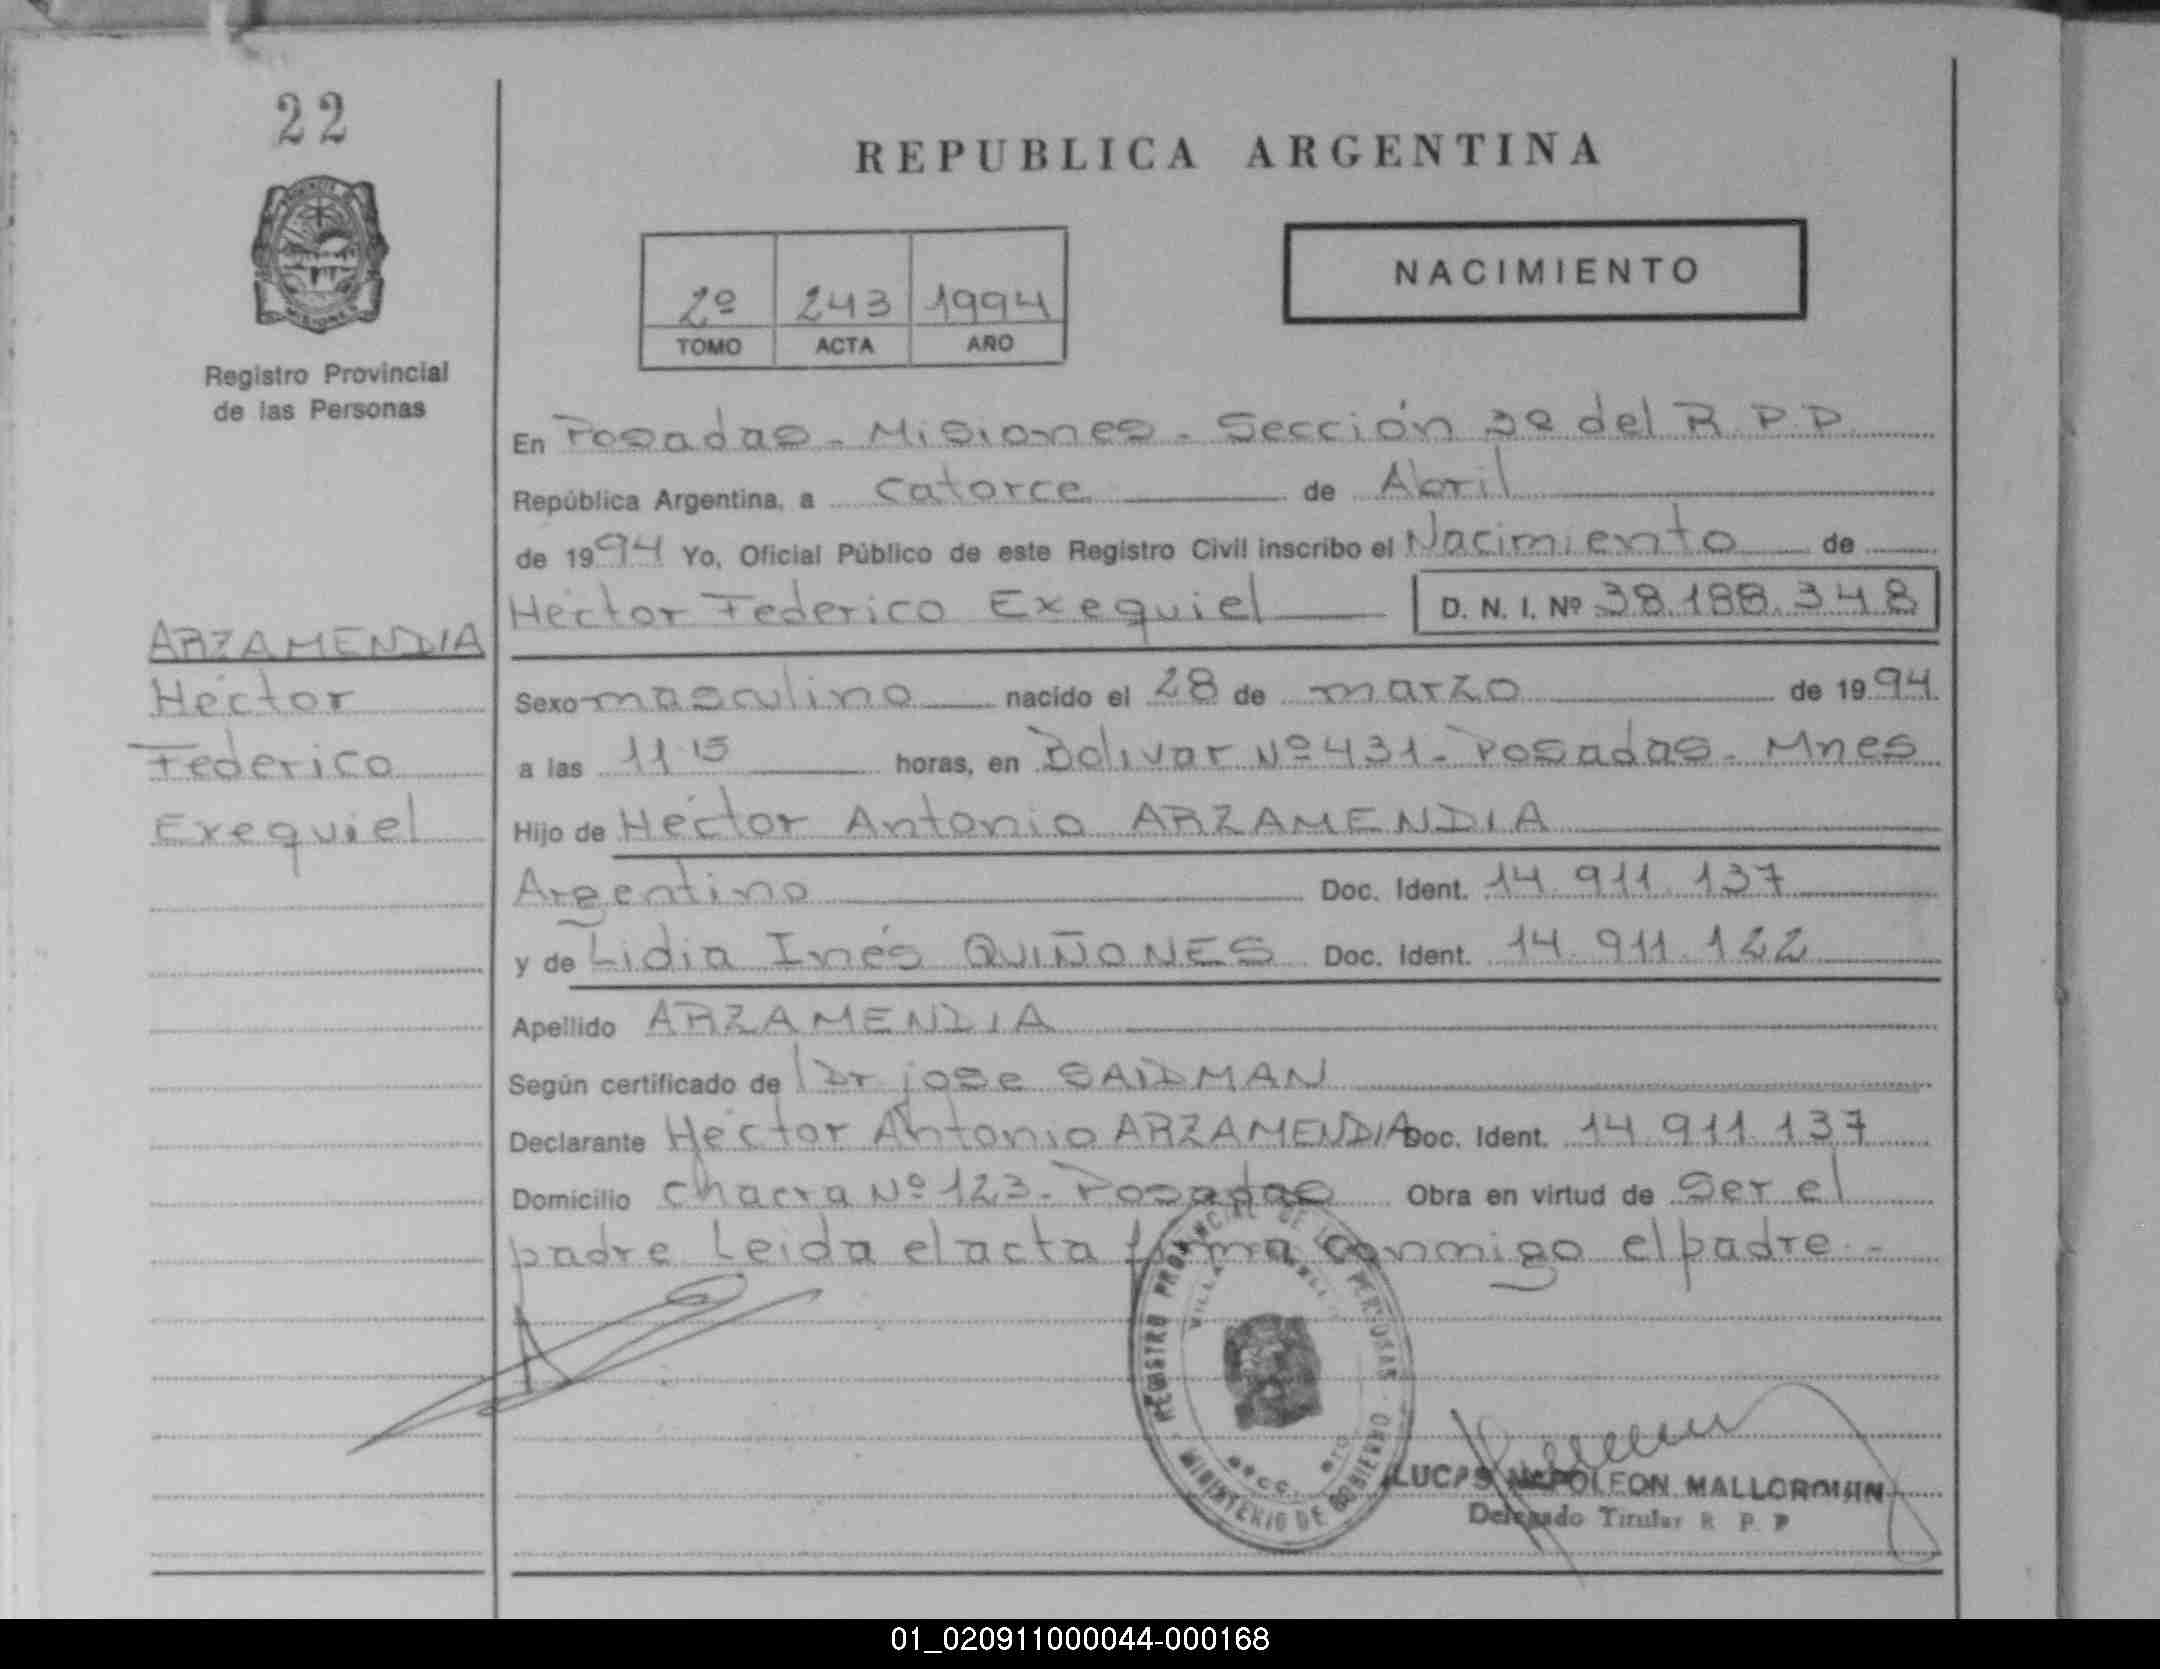 22
REPUBLICA ARGENTINA
NACIMIENTO
2º 243 1994
TOMO ACTA AÑO
MISIONES
Registro Provincial
de las Personas
En Posadas - Misiones - Sección 3º del R.P.P.
República Argentina, a catorce de Abril
de 1994 Yo, Oficial Público de este Registro Civil inscribo el Nacimiento de
Héctor Federico Exequiel D. N. I. Nº 38.188.348
ARZAMENDIA
Héctor
Federico
Exequiel
Sexo masculino nacido el 28 de marzo de 1994
a las 11 15 horas, en Bolivar Nº 431 - Posadas - Mnes
Hijo de Héctor Antonio ARZAMENDIA
Argentino Doc. Ident. 14.911.137
y de Lidia Inés QUIÑONES Doc. Ident. 14.911.122
Apellido ARZAMENDIA
Según certificado de l Dr jose SAIDMAN
Declarante Héctor Antonio ARZAMENDIA Doc. Ident. 14.911.137
Domicilio chacra Nº 123 - Posadas Obra en virtud de Ser el
padre Leida el acta firma conmigo el padre.-
REGISTRO PROVINCIAL DE LAS PERSONAS
VILLA
MINISTERIO DE GOBIERNO
LUCAS NAPOLEON MALLORQUIN
Delegado Titular R. P. P
01_020911000044-000168